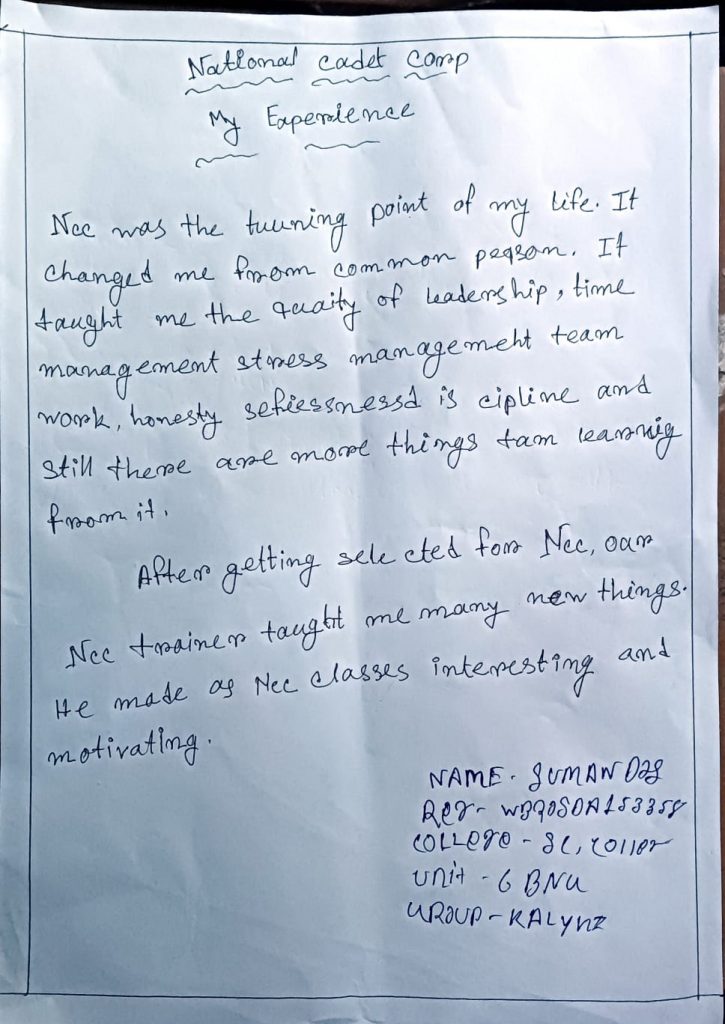 National Cadet Corp
My Experience
Ncc was the tuuning point of my life. It
changed me from common peqson. It
taught me the quaity of leadership, time
management stress management team
work, honesty sefiessnessd is cipline and
still there are more things tam learnig
from it.
After getting sele cted for Ncc, oar
Ncc trainer taught me many new things.
He made as Ncc classes interesting and
motivating.
NAME - SUMAN Das
Reg -
College - SC,
Unit - 6 BNU
Group -